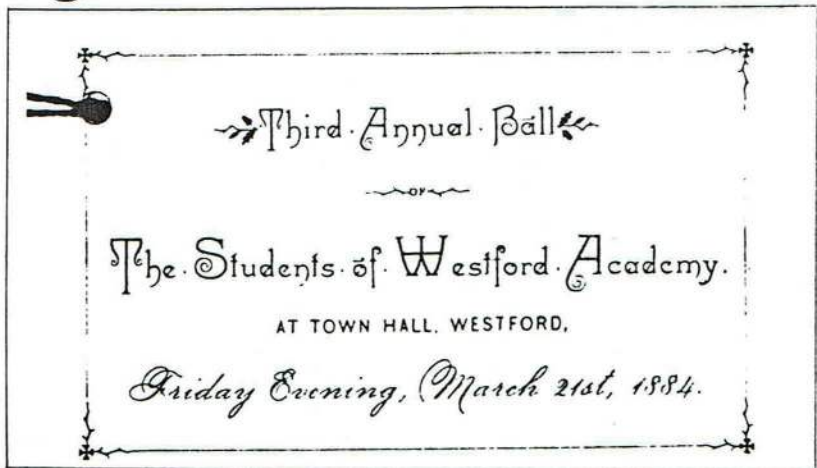 Third · Annual · Ball
OF
The · Students · of · Westford · Academy.
AT TOWN HALL, WESTFORD,
Friday Evening, March 21st, 1884.